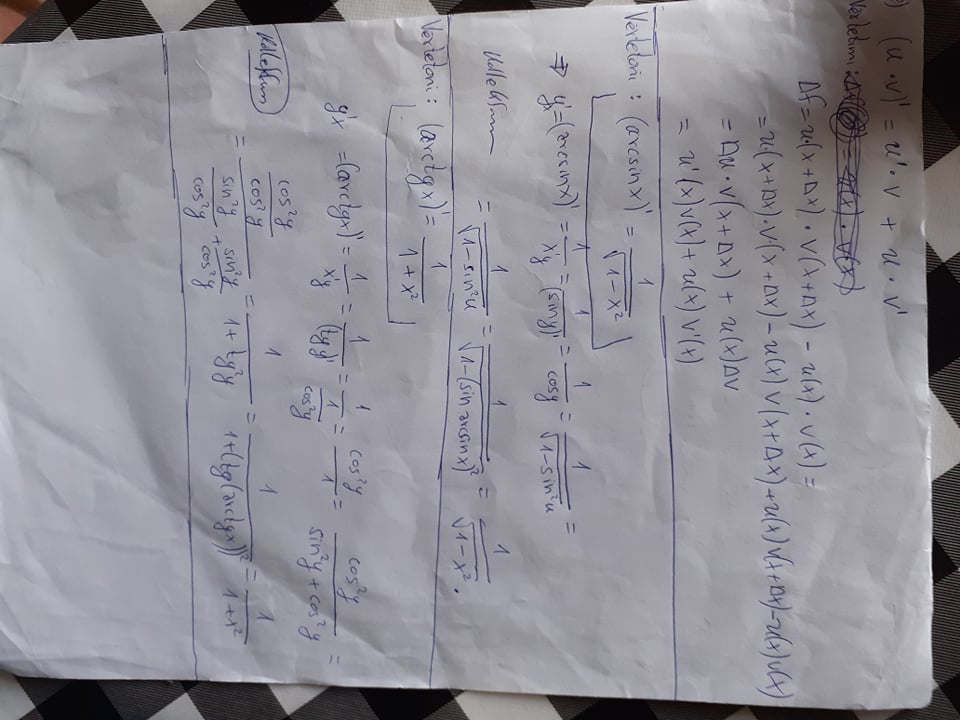 ) (u · v)' = u' · v + u · v'
Vërtetimi:
Δf = u·(x+Δx) · v(x+Δx) - u(x) · v(x) =
= u·(x+Δx)·v·(x+Δx) - u(x) v(x+Δx) + u(x) v(x+Δx) - u(x) v(x)
= Δu · v(x+Δx) + u(x)Δv
= u'(x)v(x) + u(x) v'(x)
Vërtetoni: (arcsinx)' = 1/√(1-x²)
⇒ y'x = (arcsinx)' = 1/x'y = 1/(siny)' = 1/cosy = 1/√(1-sin²u) =
= 1/√(1-sin²u) = 1/√(1-(sin arcsinx)²) = 1/√(1-x²).
Vërtetoni: (arctgx)' = 1/(1+x²)
y'x = (arctgx)' = 1/x'y = 1/(tgy)' = 1/(1/cos²y) = cos²y/1 = cos²y/(sin²y+cos²y) =
= (cos²y/cos²y)/(sin²y/cos²y + sin²y/cos²y) = 1/(1+tg²y) = 1/(1+(tg(arctgx))²) = 1/(1+x²)